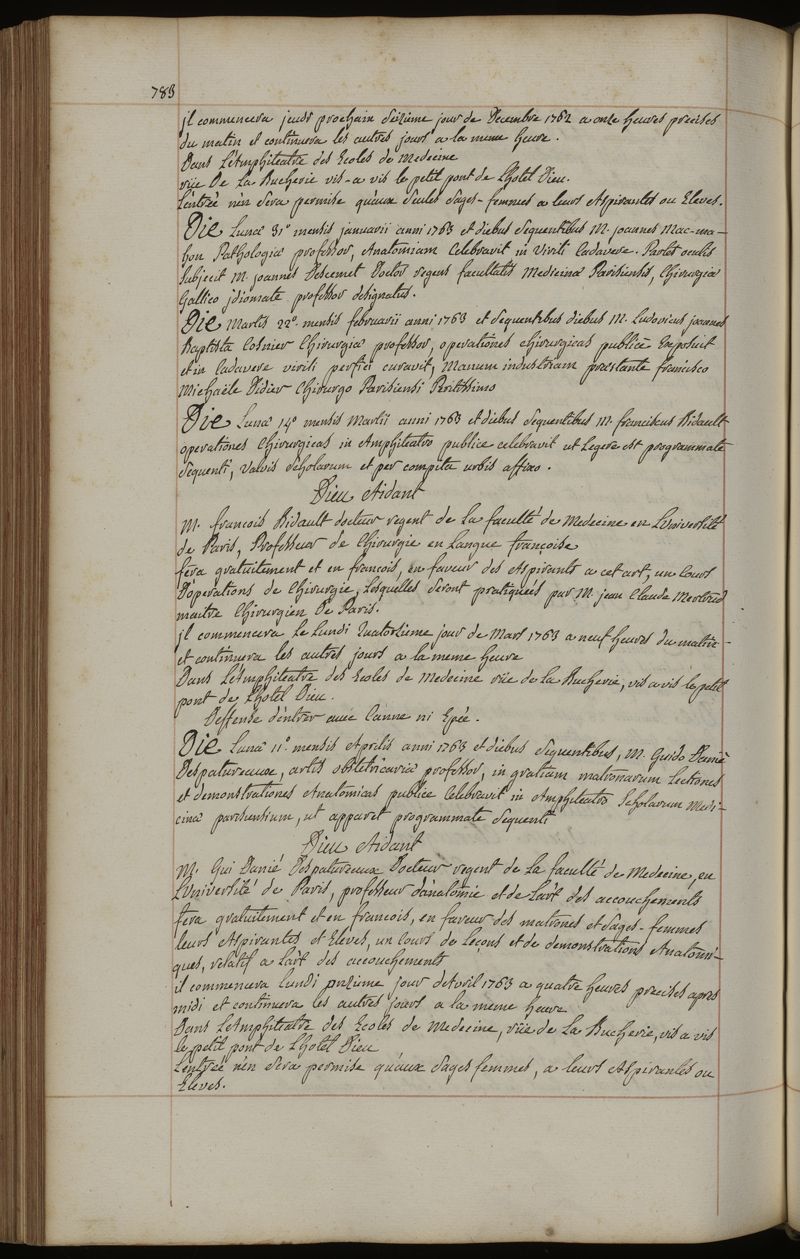 783
jl commencera jeudi prochain seizieme jour de Decembre 1762 a onze heures precises
du matin et continuera les autres jours a la meme heure.
Dans L'Amphiteatre des Ecoles de Medecine
rüe De La Bucherie vis-a vis le petit pont de Lhotel Dieu.
L'entreé n'en sera permise qu'aux seules sages-femmes a leurs Aspirantes ou Eleves.
Die Lunæ 31° mensis januarii anni 1763 et diebus sequentibus M. joannes Mac-ma-
hon Pathologiæ professor, Anatomiam Celebravit in virili Cadavere. Partes oculis
subjecit M. joannes Descemet Doctor regens facultatis Medicinæ Parisiensis, Chirurgiæ
Gallico jdiomate professor designatus.
Die Martis 22° mensis februarii anni 1763 et sequentibus diebus M. Ludovicus joannes
Baptista Cosnier Chirurgiæ professor, operationes chirurgicas publicè Exposuit
et in Cadavere virili perfici curavit, Manum industriam præstante francisco
Michaële Didier Chirurgo Parisiensi Peritissimo
Die Lunæ 14° mensis Martii anni 1763 et diebus sequentibus M. franciscus Bidault
operationes Chirurgicas in Amphiteatro publice celebravit ut Legere est programmate
sequenti, valvis scholarum et per compita urbis affixo.
Dieu Aidant
M. francois Bidault docteur regent de La faculté de Medecine en L'vniversité
de Paris, Professeur de Chirurgie en Langue françoise
fera gratuitement et en francois, en faveur des Aspirants a cet art, un Cours
D'operations de Chirurgie, Lesquelles seront pratiqueés par M. jean Claude
maitre Chirurgien De Paris.
jl commencera Le Lundi Quatorzieme jour de Mars 1763 a neuf heures du matin
et continuera les autres jours a la meme heure
Dans L'Amphiteatre des Ecoles de Medecine rüe de La Bucherie, vis a vis le petit
pont de Lhotel Dieu.
Deffense d'entrer avec Canne ni Epée.
Die Lunæ 11° mensis Aprilis anni 1763 et diebus sequentibus, M. Guido Danié
Despatureaux, artis obstetricariæ professor, in gratiam matronarum Lectiones
et demonstrationes Anatomicas publice Celebravit in Amphiteatro Scholarum Medi-
cinæ parisiensium, ut apparet programmate sequenti
Dieu Aidant
M. Gui Danié Despatureaux Docteur regent de La faculté de Medecine, en
L'vniversité de Paris, professeur d'anatomie et de L'art des accouchements
fera gratuitement et en francois, en faveur des matrones et sages-femmes
leurs Aspirantes et Eleves, un Cours de Leçons et de demonstrations Anatomi-
ques, relatif a L'art des accouchements
il commencera Lundi onzieme jour d'Avril 1763 a quatre heures precises apres
midi et continuera les autres jours a la meme heure
Dans L'Amphiteatre des Ecoles de Medecine, rüe de La Bucherie, vis a vis
le petit pont de Lhotel Dieu
L'entreé n'en sera permise qu'aux sages femmes, a leurs Aspirantes ou
Eleves.